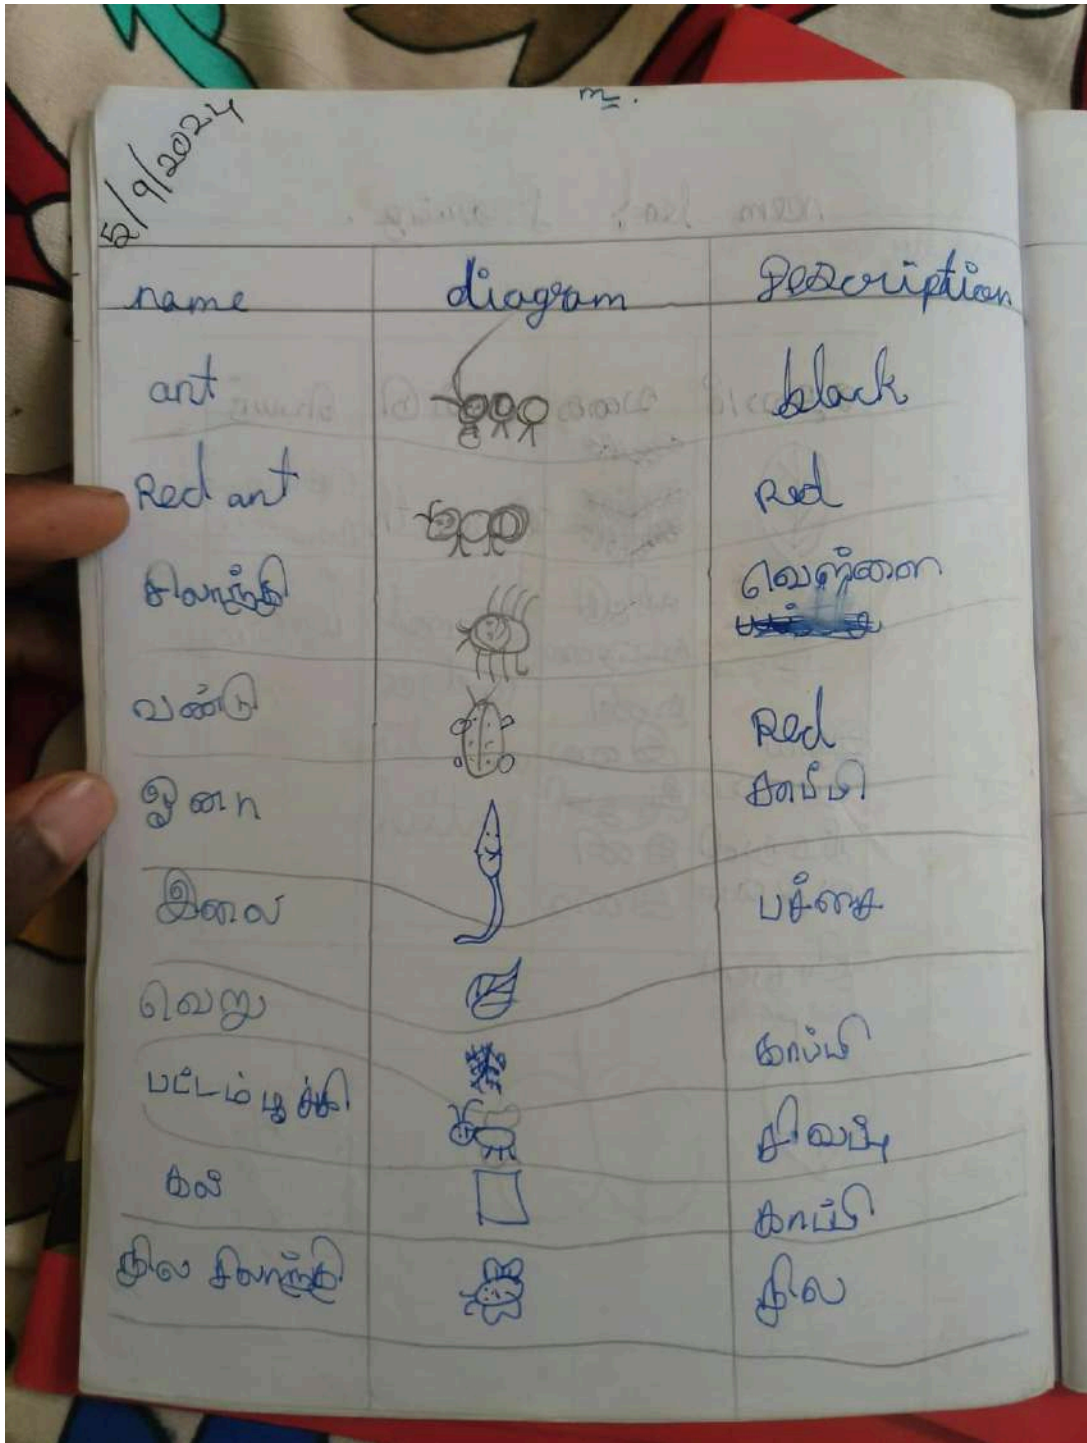 m.
5/9/2024
name diagram Description
ant black
Red ant Red
சிலாந்தி வெள்ளை
வண்டு Red
ஓனா காப்பி
இலை பச்சை
வெறு காப்பி
பட்டம் பூச்சி சிவப்பு
கல் காப்பி
நில சிலாந்தி நில